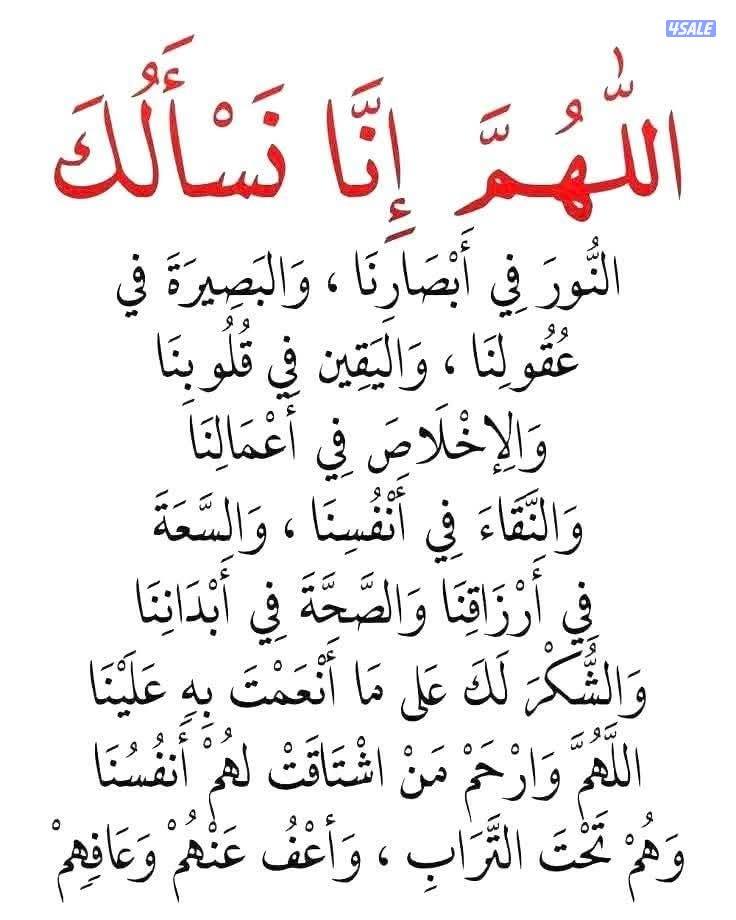 4SALE
اللّٰهُمَّ إِنَّا نَسْأَلُكَ
النُّورَ فِي أَبْصَارِنَا ، وَالبَصِيرَةَ فِي
عُقُولِنَا ، وَاليَقِين فِي قُلُوبِنَا
وَالِإخْلَاصَ فِي أَعْمَالِنَا
وَالنَّقَاءَ فِي أَنْفُسِنَا ، وَالسَّعَةَ
فِي أَرْزَاقِنَا وَالصَّحِّةَ فِي أَبْدَانِنَا
وَالشُّكْرَ لَكَ عَلى مَا أَنْعَمْتَ بِهِ عَلَيْنَا
اللَّهُمَّ وَارْحَمْ مَنْ اشْتَاقَتْ لهُمْ أَنفُسُنَا
وَهُمْ تَحْتَ التَّرَابِ ، وَأعْفُ عَنْهُمْ وَعَافِهِمْ